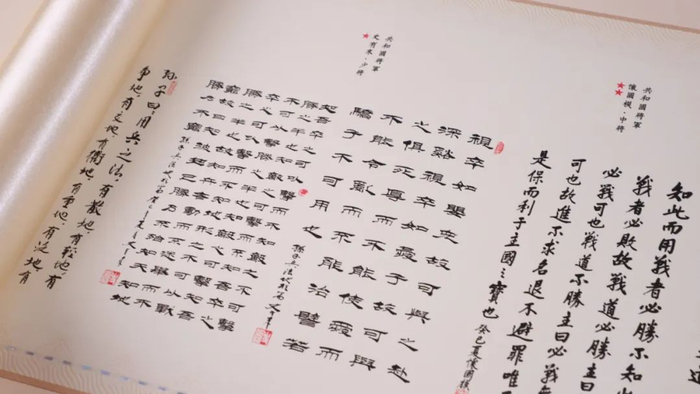 共和國將軍
懷國模·中將
知此而用戰者必勝不知
戰者必敗故戰道必勝
必戰可也戰道不勝主曰必戰
可也故進不求名退不避罪唯
是保而利于主國之寶也 癸巳夏懷國模
共和國將軍
少將
視卒如嬰兒故可與之赴
深谿視卒如愛子故可與
之俱死厚而不能使愛而
不能令亂而不能治譬若
驕子不可用也
孫子兵法地形篇
知吾卒之可以擊而不知敵之不可擊
勝之半也知敵之可擊而不知吾卒之
不可以擊勝之半也知敵之可擊知吾
卒之可以擊而不知地形之不可以戰
勝之半也故知兵者動而不迷舉而不
窮故曰知彼知己勝乃不殆知天知地
孫子曰用兵之法有散地有輕地有
爭地有交地有衢地有重地有圮地有